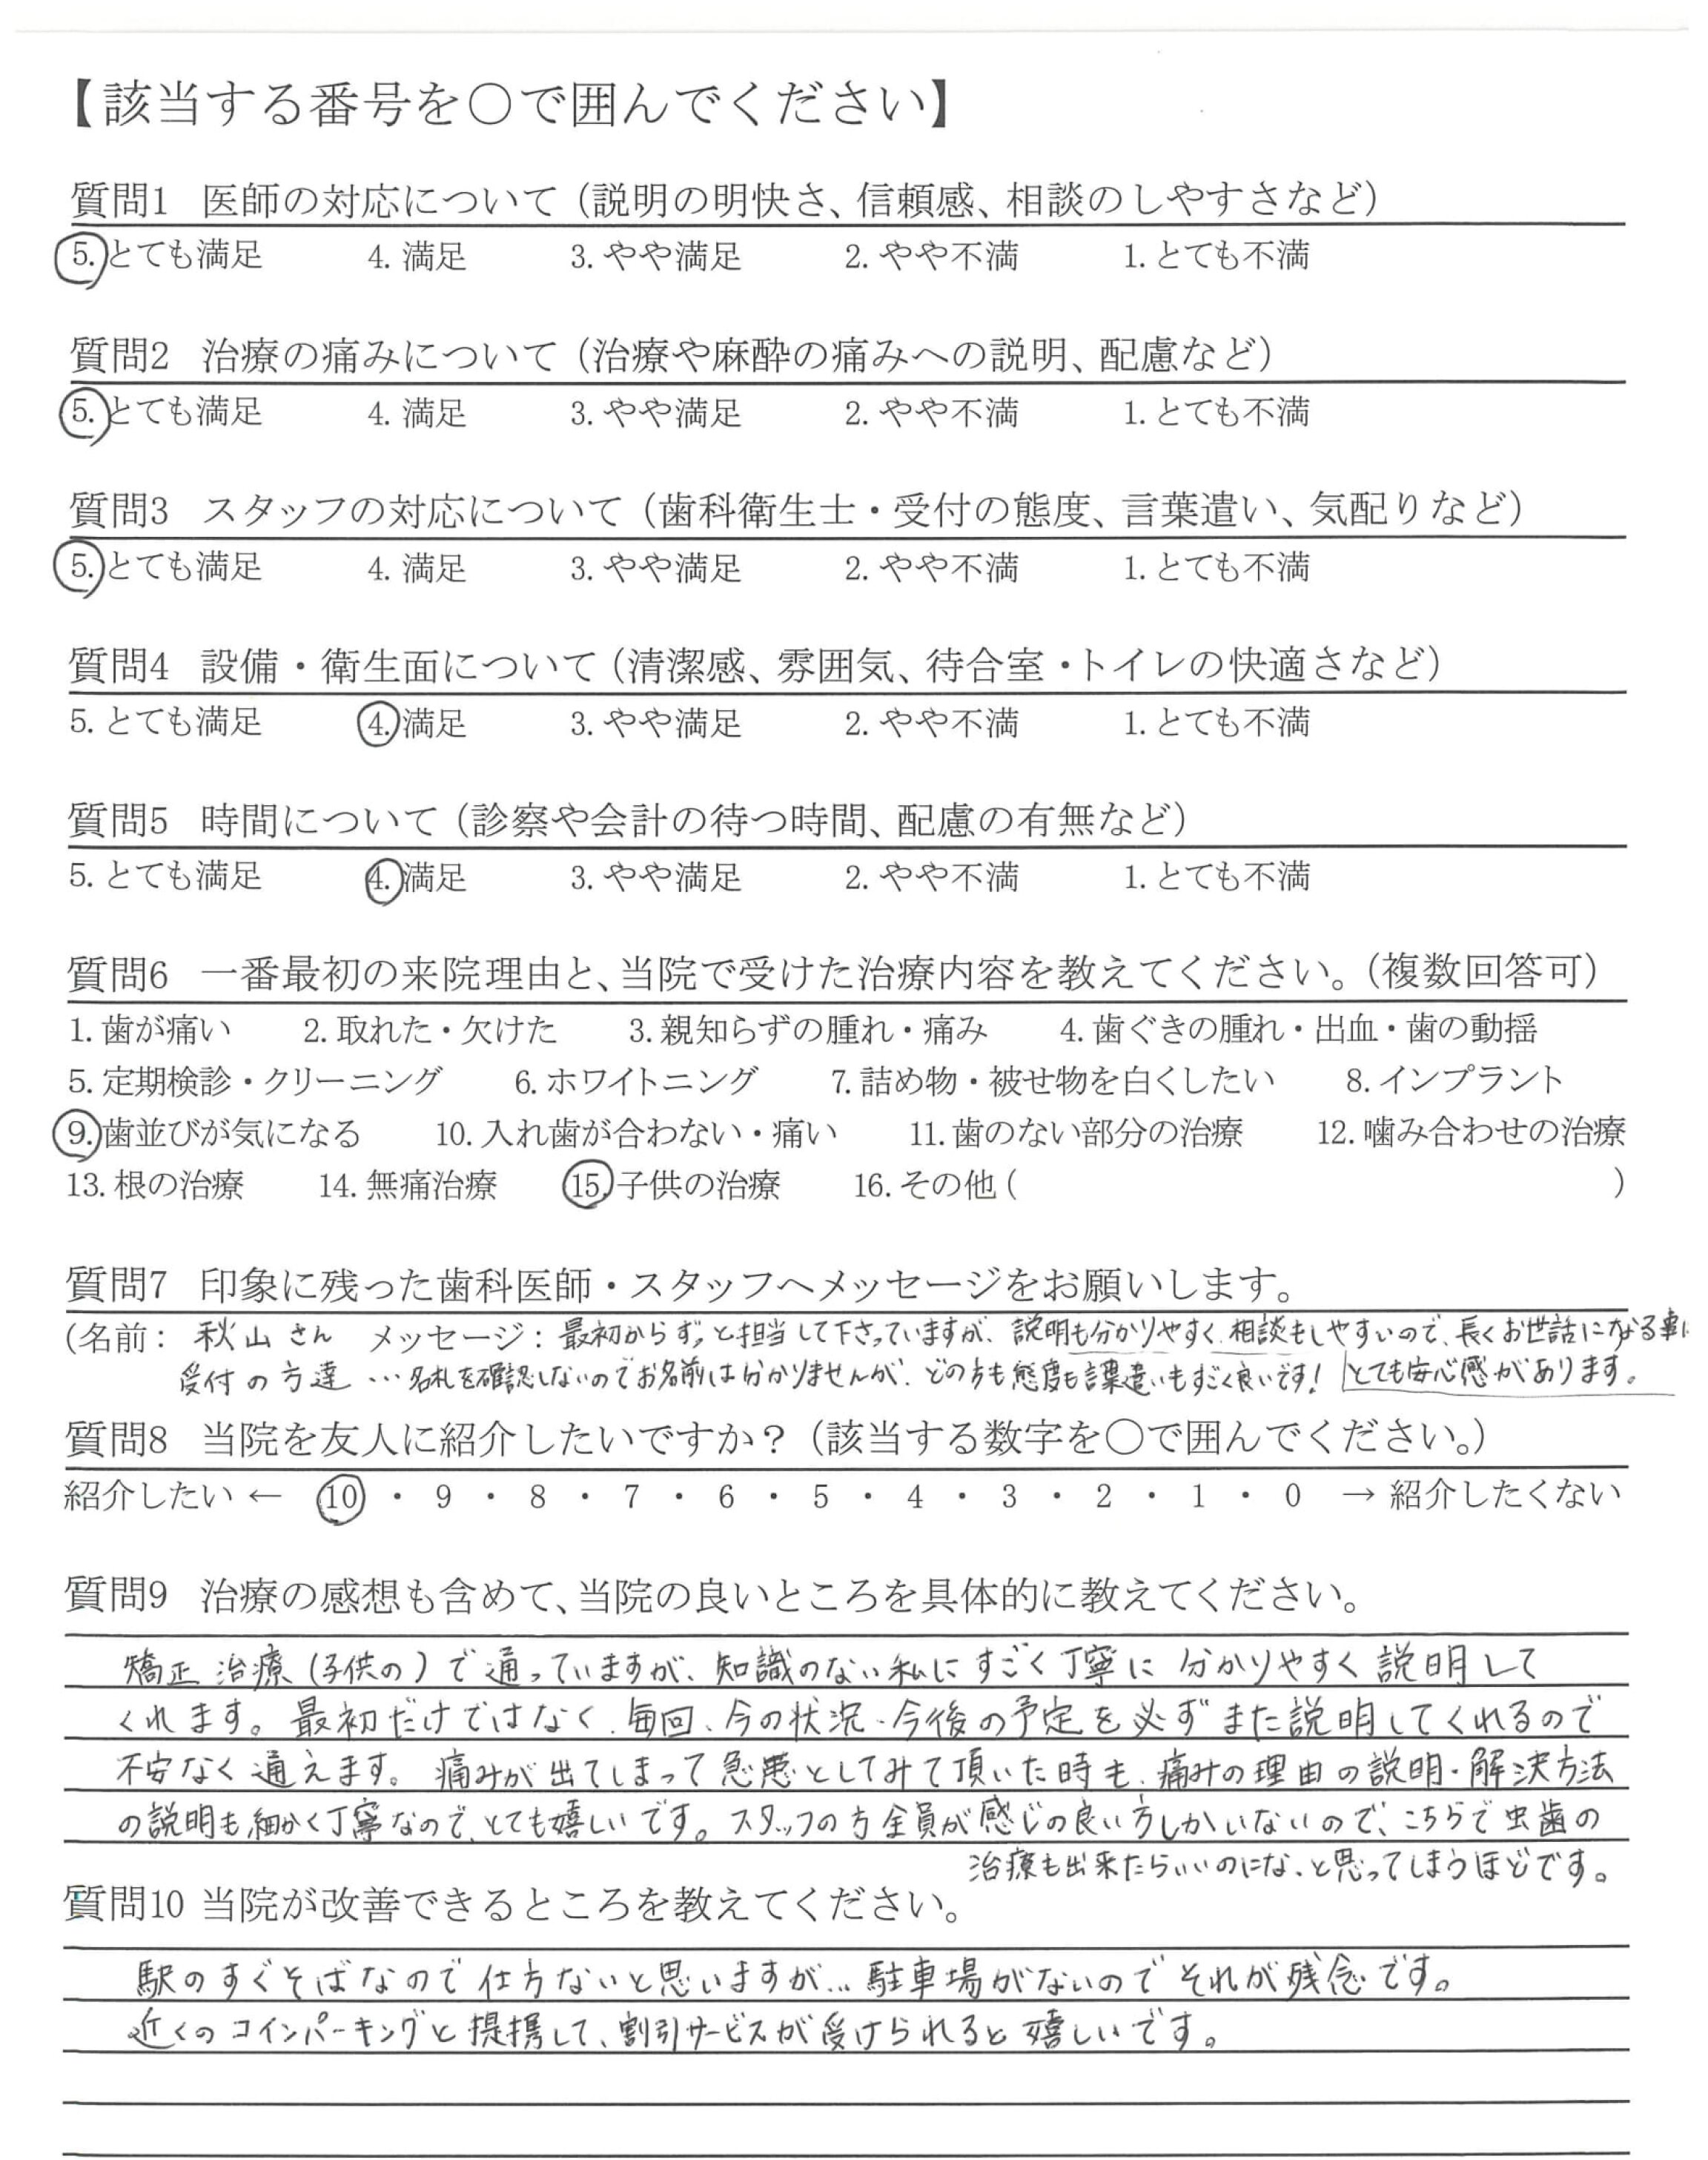 【該当する番号を〇で囲んでください】
質問1 医師の対応について（説明の明快さ、信頼感、相談のしやすさなど）
5. とても満足 4. 満足 3. やや満足 2. やや不満 1. とても不満
質問2 治療の痛みについて（治療や麻酔の痛みへの説明、配慮など）
5. とても満足 4. 満足 3. やや満足 2. やや不満 1. とても不満
質問3 スタッフの対応について（歯科衛生士・受付の態度、言葉遣い、気配りなど）
5. とても満足 4. 満足 3. やや満足 2. やや不満 1. とても不満
質問4 設備・衛生面について（清潔感、雰囲気、待合室・トイレの快適さなど）
5. とても満足 4. 満足 3. やや満足 2. やや不満 1. とても不満
質問5 時間について（診察や会計の待つ時間、配慮の有無など）
5. とても満足 4. 満足 3. やや満足 2. やや不満 1. とても不満
質問6 一番最初の来院理由と、当院で受けた治療内容を教えてください。（複数回答可）
1. 歯が痛い 2. 取れた・欠けた 3. 親知らずの腫れ・痛み 4. 歯ぐきの腫れ・出血・歯の動揺
5. 定期検診・クリーニング 6. ホワイトニング 7. 詰め物・被せ物を白くしたい 8. インプラント
9. 歯並びが気になる 10. 入れ歯が合わない・痛い 11. 歯のない部分の治療 12. 噛み合わせの治療
13. 根の治療 14. 無痛治療 15. 子供の治療 16. その他 ( )
質問7 印象に残った歯科医師・スタッフへメッセージをお願いします。
(名前: 秋山さん メッセージ: 最初からずっと担当して下さっていますが、説明も分かりやすく、相談もしやすいので、長くお世話になる事に
受付の方達 …名札を確認しないのでお名前は分かりませんが、どの方も態度も言葉遣いもすごく良いです! とても安心感があります。
質問8 当院を友人に紹介したいですか？（該当する数字を〇で囲んでください。）
紹介したい ← 10 ・ 9 ・ 8 ・ 7 ・ 6 ・ 5 ・ 4 ・ 3 ・ 2 ・ 1 ・ 0 → 紹介したくない
質問9 治療の感想も含めて、当院の良いところを具体的に教えてください。
矯正治療(子供の)で通っていますが、知識のない私にすごく丁寧に分かりやすく説明して
くれます。最初だけではなく、毎回、今の状況・今後の予定を必ずまた説明してくれるので
不安なく通えます。痛みが出てしまって急患としてみて頂いた時も、痛みの理由の説明・解決方法
の説明も細かく丁寧なので、とても嬉しいです。スタッフの方全員が感じの良い方しかいないので、こちらで虫歯の
治療も出来たらいいのにな、と思ってしまうほどです。
質問10 当院が改善できるところを教えてください。
駅のすぐそばなので仕方ないと思いますが…駐車場がないのでそれが残念です。
近くのコインパーキングと提携して、割引サービスが受けられると嬉しいです。